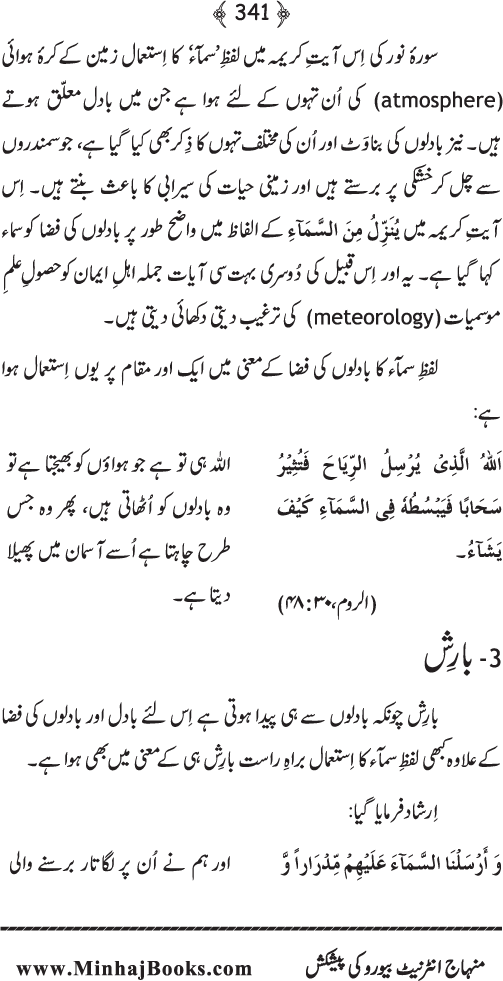 ﴿ 341 ﴾
سورۂ نور کی اِس آیتِ کریمہ میں لفظِ ’سمآء‘ کا اِستعمال زمین کے کرۂ ہوائی
(atmosphere) کی اُن تہوں کے لئے ہوا ہے جن میں بادل معلّق ہوتے
ہیں۔ نیز بادلوں کی بناوَٹ اور اُن کی مختلف تہوں کا ذِکر بھی کیا گیا ہے، جو سمندروں
سے چل کر خشکی پر برستے ہیں اور زمینی حیات کی سیرابی کا باعث بنتے ہیں۔ اِس
آیتِ کریمہ میں یُنَزِّلُ مِنَ السَّمَآءِ کے الفاظ میں واضح طور پر بادلوں کی فضا کو سماء
کہا گیا ہے۔ یہ اور اِس قبیل کی دُوسری بہت سی آیات جملہ اہلِ ایمان کو حصولِ علمِ
موسمیات (meteorology) کی ترغیب دیتی دکھائی دیتی ہیں۔
لفظِ سمآء کا بادلوں کی فضا کے معنی میں ایک اور مقام پر یوں اِستعمال ہوا
ہے:
اَللهُ الَّذِیْ یُرْسِلُ الرِّیَاحَ فَتُثِیْرُ
سَحَابًا فَیَبْسُطُهٗ فِی السَّمَآءِ کَیْفَ
یَشَآءُ۔
(الروم، ۳۰:۴۸)
اللہ ہی تو ہے جو ہواؤں کو بھیجتا ہے تو
وہ بادلوں کو اُٹھاتی ہیں، پھر وہ جس
طرح چاہتا ہے اُسے آسمان میں پھیلا
دیتا ہے۔
3- بارِش
بارِش چونکہ بادلوں سے ہی پیدا ہوتی ہے اِس لئے بادل اور بادلوں کی فضا
کے علاوہ کبھی لفظِ سمآء کا اِستعمال براہِ راست بارِش ہی کے معنی میں بھی ہوا ہے۔
اِرشاد فرمایا گیا:
وَ أَرْسَلْنَا السَّمَآءَ عَلَیْهِمْ مِّدْرَاراً وَّ
اور ہم نے اُن پر لگاتار برسنے والی
منہاج انٹرنیٹ بیورو کی پیشکش
www.MinhajBooks.com